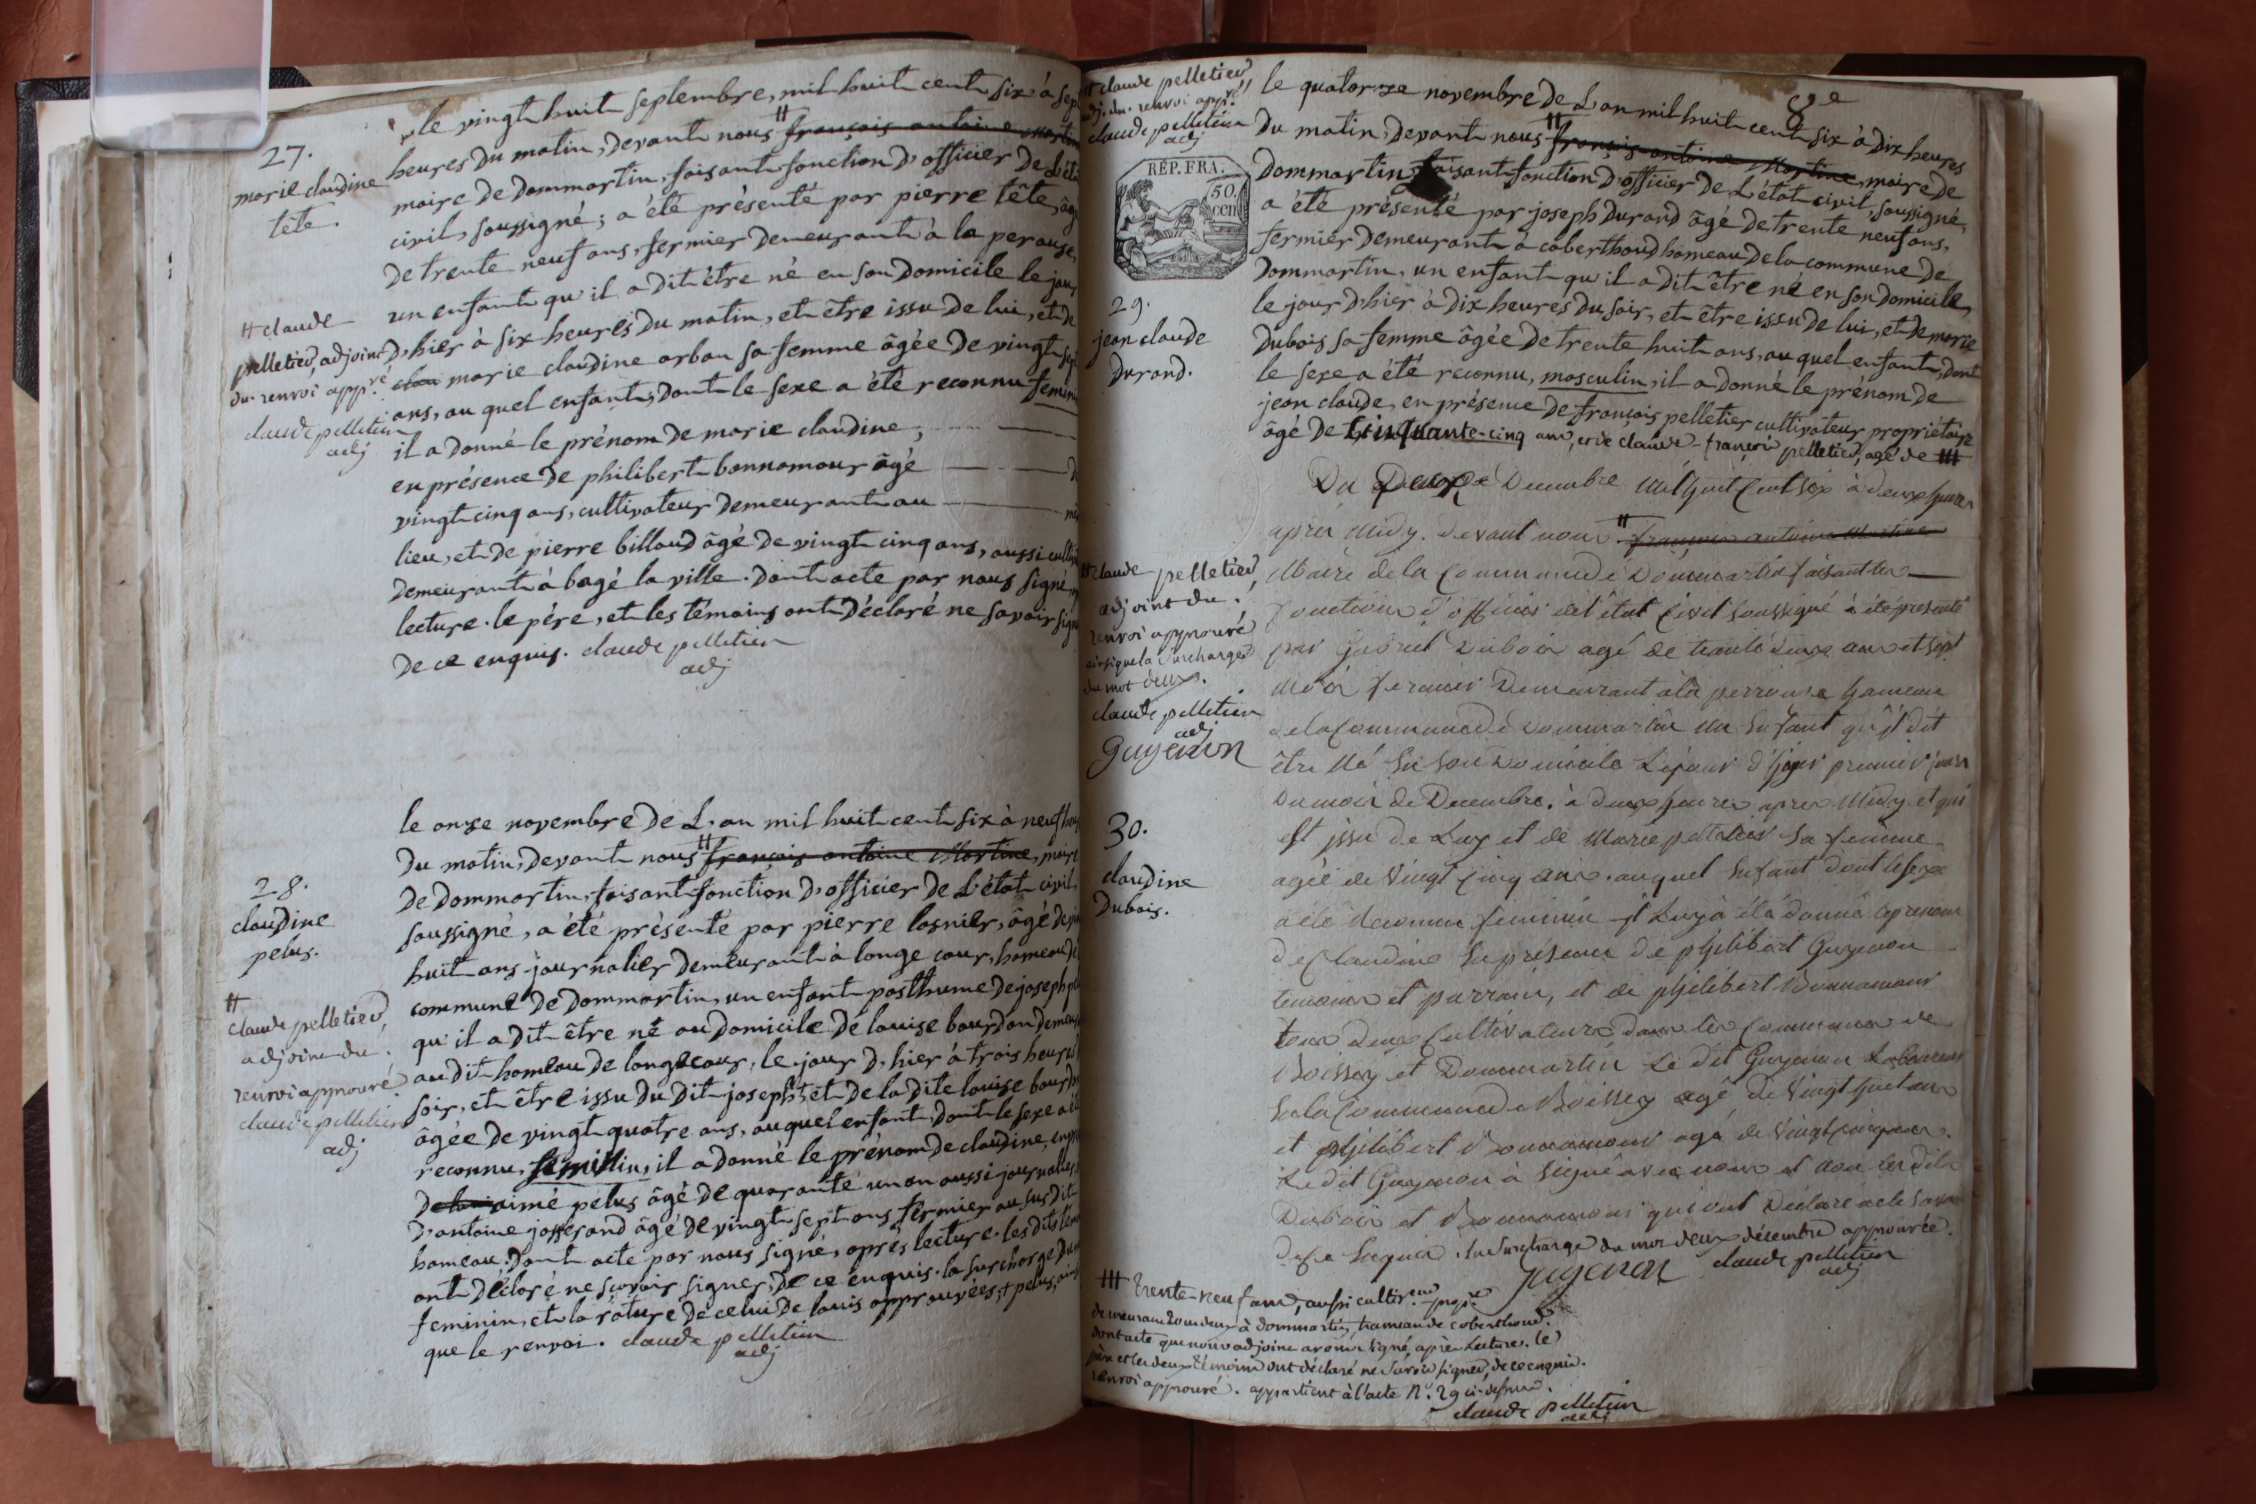 27.
marie claudine
tête.
le vingt huit septembre, mil huit cent six à sep
heures du matin, devant nous # françois antoine martin
maire de dommartin, faisant fonction d'officier de l'éta
civil, soussigné; a été présenté par pierre tête, âg
de trente neuf ans, fermier demeurant à la perouse,
un enfant qu'il a dit être né en son domicile le jour
d'hier à six heures du matin, et être issu de lui, et de
marie claudine arban sa femme âgée de vingt sep
ans, au quel enfant, dont le sexe a été reconnu femini
il a donné le prénom de marie claudine,
en présence de philibert bonnamour âgé d
vingt cinq ans, cultivateur demeurant au
lieu, et de pierre billoud âgé de vingt cinq ans, aussi cultiv
demeurant à bagé la ville. dont acte par nous signé
lecture. le père, et les témoins ont déclaré ne savoir sign
de ce enquis. claude pelletier
adj
# claude
pelletier, adjoint
du. renvoi app.vé
claude pelletier
adj
28.
claudine
pelus.
#
claude pelletier,
adjoint du.
renvoi approuvé
claude pelletier
adj
le onze novembre de L'an mil huit cent six à neuf heu
du matin, devant nous # françois antoine Martine, maire
de dommartin, faisant fonction d'officier de L'état civil,
soussigné, a été présenté par pierre lasnier, âgé de
huit ans journalier demeurant à longe cour, hameau de
commune de dommartin, un enfant posthume de joseph
qu'il a dit être né au domicile de louise bourdon demeu
au dit hameau de longecour, le jour d'hier à trois heures
soir, et être issu du dit joseph + et de la dite louise bourdo
âgée de vingt quatre ans, au quel enfant, dont le sexe a été
reconnu, feminin, il a donné le prénom de claudine, en
de louis aimé pelus âgé de quarante un an aussi journalier,
d'antoine josserand âgé de vingt sept ans fermier au susdit
hameau. dont acte par nous signé, après lecture. les dits tém
ont déclaré ne savoir signer, de ce enquis. la surcharge du
feminin, et la rature de celui de louis approuvées, + pelus, ains
que le renvoi. claude pelletier
adj
# claude pelletier,
adj. du. renvoi app.vé
claude pelletier
adj
8e
RÉP. FRA.
50.
cen
29.
jean claude
durand.
le quatorze novembre de L'an mil huit cent six à dix heures
du matin, devant nous # françois antoine Martine, maire de
dommartin, faisant fonction d'officier de L'état civil, soussigné,
a été présenté par joseph durand âgé de trente neuf ans,
fermier demeurant à coberthoud hameau de la commune de
dommartin, un enfant qu'il a dit être né en son domicile,
le jour d'hier à dix heures du soir, et être issu de lui, et de marie
dubois sa femme âgée de trente huit ans, au quel enfant, dont
le sexe a été reconnu, masculin, il a donné le prénom de
jean claude, en présence de françois pelletier cultivateur propriétaire
âgé de cinquante-cinq ans, et de claude-françois pelletier, agé de ###
# claude pelletier,
adjoint du.
renvoi approuvé
ainsi que la surcharge
du mot deux.
claude pelletier
adj
Guyenon
30.
claudine
dubois.
Du Deux Decembre Mil huit Cent Six à deux heures
apres Midy. devant nous # françois antoine Martine
Maire de la Commune de Dommartin faisant les
fonctions d'officier de l'état Civil soussigné à été présenté
par Gabriel dubois agé de trente deux ans et sept
Mois fermier Demeurant à la perrouse hameau
de la Commune de Dommartin un Enfant qu'il dit
être Né En son Domicile Le jour d'hyer premier jour
Du mois de Decembre. à deux heures apres Midy et qui
est issu de Luy et de Marie pelletier sa femme
agée de Vingt Cinq ans. auquel Enfant dont le sexe
a été reconnu féminin il Luy à été donné le prénom
de Claudine En présence de philibert Guyenon
temoin et parrain, et de philibert Bonnamour
tous deux Cultivateurs dans les Communes de
Boissey et Dommartin Le dit Guyenon
En la Commune de Boissey agé de Vingt huit ans
et philibert Bonnamour agé de Vingt Cinq ans.
Le dit Guyenon à signé avec nous et non les dits
Dubois et Bonnamour qui ont Declaré ne le savoir
de ce Enquis. La surcharge du mot deux décembre approuvée.
Guyenon claude pelletier
adj
### trente-neuf ans, aussi cultiv.eur prop.re
demeurant tous deux à dommartin, hameau de coberthoud.
dont acte que nous adjoint avons signé, après Lecture. le
père et les deux témoins ont déclaré ne savoir signer, de ce enquis.
renvoi approuvé. appartient à l'acte N.o 29 ci-dessus.
claude pelletier
adj